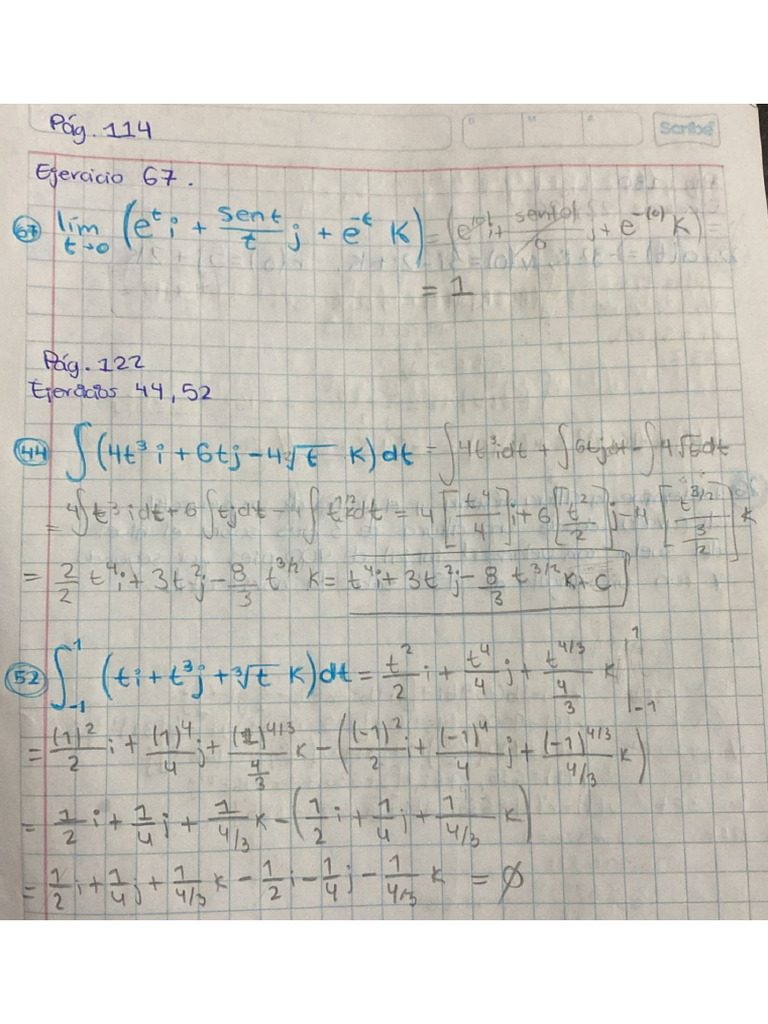 Pág. 114
Scribe
Ejercicio 67.
67 lím t→0 (e^t i + sent/t j + e^-t K) = (e^(0) i + sen(0)/0 j + e^-(0) K) =
= 1
Pág. 122
Ejercicios 44, 52
44 ∫(4t³ i + 6t j - 4√t K) dt = ∫4t³ i dt + ∫6t j dt - ∫4√t dt
= 4∫t³ i dt + 6∫t j dt - 4∫t^1/2 k dt = 4[t⁴/4] i + 6[t²/2] j - 4[t^3/2 / 3/2] K
= 2/2 t⁴ i + 3t² j - 8/3 t^3/2 K = t⁴ i + 3t² j - 8/3 t^3/2 K + C
52 ∫_-1^1 (t i + t³ j + ³√t K) dt = t²/2 i + t⁴/4 j + t^4/3 / 4/3 K |_-1^1
= (1)²/2 i + (1)⁴/4 j + (1)^4/3 / 4/3 K - ((-1)²/2 i + (-1)⁴/4 j + (-1)^4/3 / 4/3 K)
= 1/2 i + 1/4 j + 1/4/3 K - (1/2 i + 1/4 j + 1/4/3 K)
= 1/2 i + 1/4 j + 1/4/3 K - 1/2 i - 1/4 j - 1/4/3 K = ∅